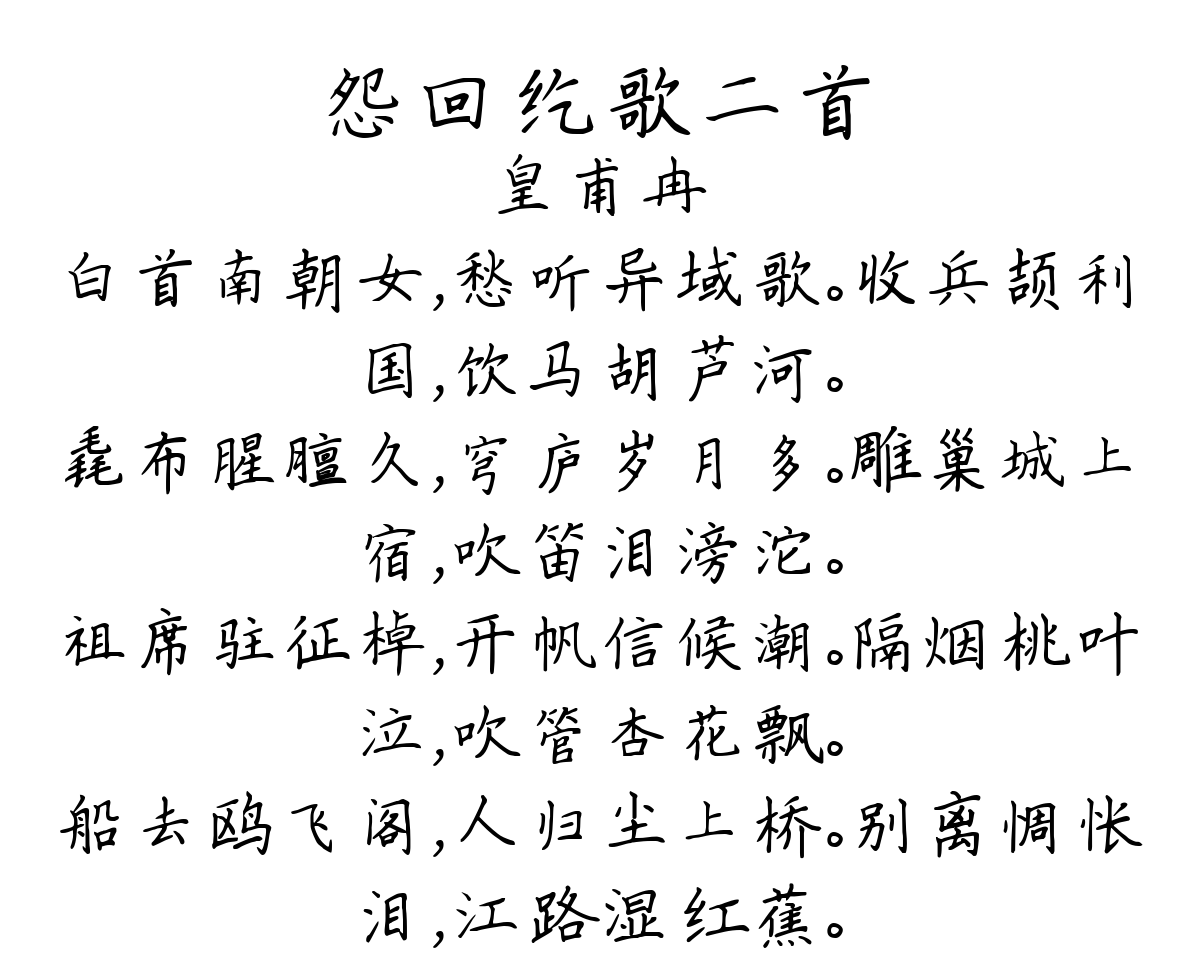 怨回纥歌二首
皇甫冉
白首南朝女,愁听异域歌。收兵颉利
国,饮马胡芦河。
毳布腥膻久,穹庐岁月多。雕巢城上
宿,吹笛泪滂沱。
祖席驻征棹,开帆信候潮。隔烟桃叶
泣,吹管杏花飘。
船去鸥飞阁,人归尘上桥。别离惆怅
泪,江路湿红蕉。